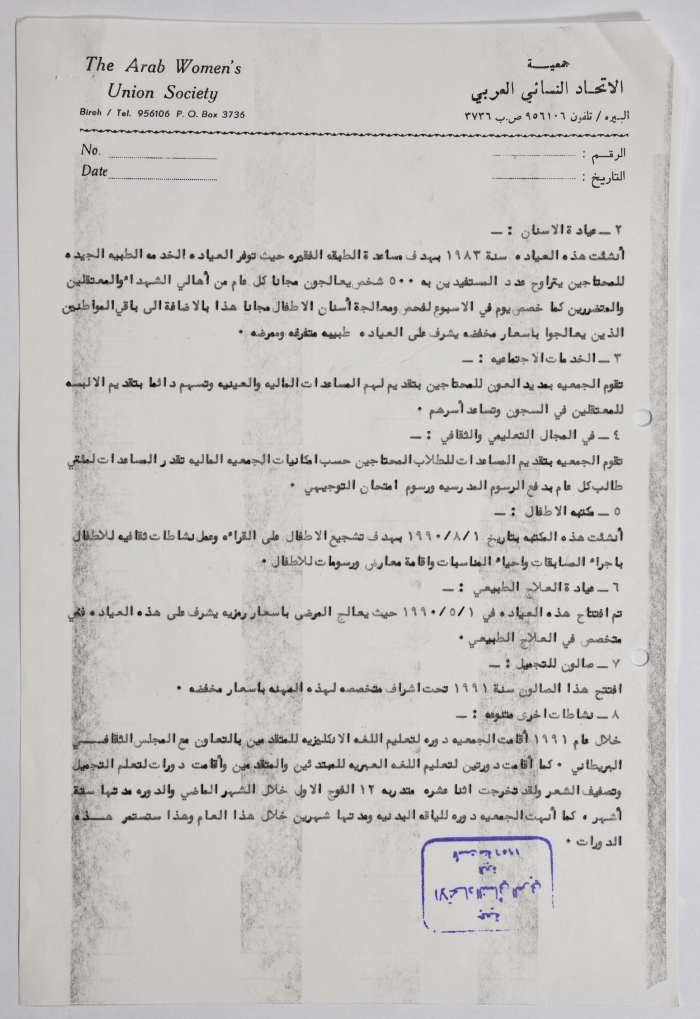 The Arab Women's
Union Society
Bireh / Tel. 956106 P. O. Box 3736
جمعيـــة
الاتحـاد النسائي العربي
البيره / تلفون ٩٥٦١٠٦ ص.ب ٣٧٣٦
No.
Date
الرقـم :
التاريخ :
٢ ــ عيادة الاسنان : ــ
أنشئت هذه العياده سنة ١٩٨٣ بهدف مساعدة الطبقه الفقيره حيث توفر العياده الخدمه الطبيه الجيده
للمحتاجين يتراوح عدد المستفيدين به ٥٠٠ شخص يعالجون مجانا كل عام من أهالي الشهداء والمعتقلين
والمتضررين كما خصص يوم في الاسبوع لفحص ومعالجة أسنان الاطفال مجانا هذا بالاضافة الى باقي المواطنين
الذين يعالجوا باسعار مخفضه يشرف على العياده طبيبه متفرغه وممرضه .
٣ ــ الخدمات الاجتماعيه : ــ
تقوم الجمعيه بمديد العون للمحتاجين بتقديم لهم المساعدات الماليه والعينيه وتسهم دائما بتقديم الالبسه
للمعتقلين في السجون وتساعد أسرهم .
٤ ــ في المجال التعليمي والثقافي : ــ
تقوم الجمعيه بتقديم المساعدات للطلاب المحتاجين حسب امكانيات الجمعيه الماليه تقدر المساعدات لمئتي
طالب كل عام بدفع الرسوم المدرسيه ورسوم امتحان التوجيهي .
٥ ــ مكتبه الاطفال : ــ
أنشئت هذه المكتبه بتاريخ ١٩٩٠/٨/١ بهدف تشجيع الاطفال على القراءه وعمل نشاطات ثقافيه للاطفال
باجراء المسابقات واحياء المناسبات واقامة معارض ورسومات للاطفال .
٦ ــ عيادة العلاج الطبيعي : ــ
تم افتتاح هذه العياده في ١٩٩٠/٥/١ حيث يعالج المرضى باسعار رمزيه يشرف على هذه العياده فني
متخصص في العلاج الطبيعي .
٧ ــ صالون للتجميل : ــ
افتتح هذا الصالون سنة ١٩٩١ تحت اشراف متخصصه لهذه المهنه باسعار مخفضه .
٨ ــ نشاطات اخرى متنوعه : ــ
خلال عام ١٩٩١ أقامت الجمعيه دوره لتعليم اللغه الانكليزيه للمتقدمين بالتعاون مع المجلس الثقافــــي
البريطاني . كما أقامت دورتين لتعليم اللغه العبريه للمبتدئين والمتقدمين وأقامت دورات لتعلم التجميل
وتصفيف الشعر ولقد تخرجت اثنا عشره متدربه ١٢ الفوج الاول خلال الشهر الماضي والدوره مدتها ستة
أشهر . كما أنهت الجمعيه دوره للياقه البدنيه ومدتها شهرين خلال هذا العام وهذا ستستمر هـــذه
الدورات .
جمعية
الاتحاد النسائي العربي
البيرة
تأسست سنة ١٩٥٦